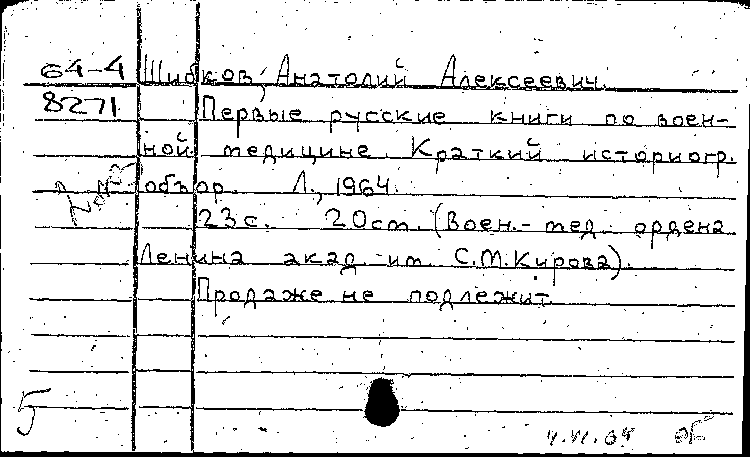 64-4 Шибков, Анатолий Алексеевич.
8271 Первые русские книги по воен-
ной медицине. Краткий историогр.
обзор. Л., 1964.
23 с. 20 см. (Воен.-мед. ордена
Ленина акад. им. С.М.Кирова).
Продаже не подлежит
5